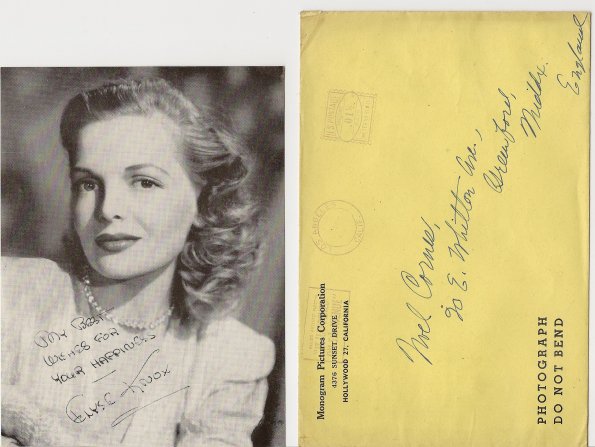 My Best
Wishes for
Your Happiness
Elyse Knox
Noel Corner,
20 E. Whitton Ave.,
Greenford,
Middx.
England
Monogram Pictures Corporation
4376 SUNSET DRIVE
HOLLYWOOD 27, CALIFORNIA
LOS ANGELES
CALIF.
U.S. POSTAGE
PHOTOGRAPH
DO NOT BEND